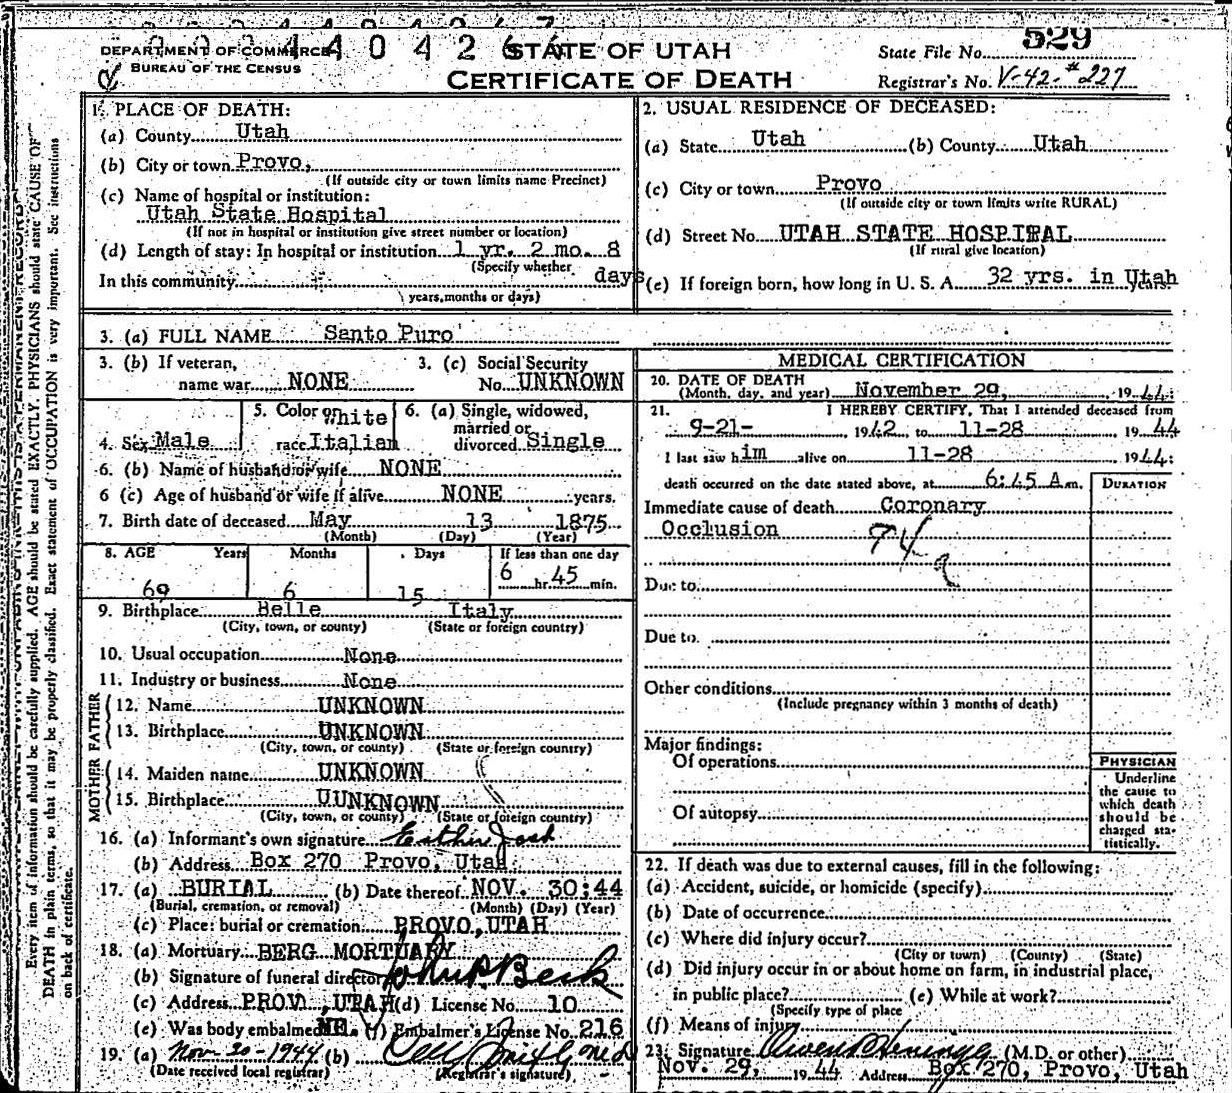 DEPARTMENT OF COMMERCE
BUREAU OF THE CENSUS
4 4 0 4 2 6
STATE OF UTAH
CERTIFICATE OF DEATH
State File No. 529
Registrar's No. V-42-#227
Every item of information should be carefully supplied. AGE should be stated EXACTLY. PHYSICIANS should state CAUSE OF
DEATH in plain terms, so that it may be properly classified. Exact statement of OCCUPATION is very important. See instructions
on back of certificate.
1. PLACE OF DEATH:
(a) County Utah
(b) City or town Provo,
(If outside city or town limits name Precinct)
(c) Name of hospital or institution:
Utah State Hospital
(If not in hospital or institution give street number or location)
(d) Length of stay: In hospital or institution 1 yr. 2 mo. 8
(Specify whether days
In this community
years, months or days)
2. USUAL RESIDENCE OF DECEASED:
(a) State Utah (b) County Utah
(c) City or town Provo
(If outside city or town limits write RURAL)
(d) Street No. UTAH STATE HOSPITAL
(If rural give location)
(e) If foreign born, how long in U. S. A. 32 yrs. in Utah years.
3. (a) FULL NAME Santo Puro
3. (b) If veteran,
name war NONE
3. (c) Social Security
No. UNKNOWN
4. Sex Male
5. Color or White
race Italian
6. (a) Single, widowed,
married or
divorced Single
6. (b) Name of husband or wife NONE
6 (c) Age of husband or wife if alive NONE years.
7. Birth date of deceased May 13 1875
(Month) (Day) (Year)
8. AGE Years Months Days If less than one day
69 6 15 6 hr. 45 min.
9. Birthplace Belle Italy
(City, town, or county) (State or foreign country)
10. Usual occupation None
11. Industry or business None
FATHER
12. Name UNKNOWN
13. Birthplace UNKNOWN
(City, town, or county) (State or foreign country)
MOTHER
14. Maiden name UNKNOWN
15. Birthplace UUNKNOWN
(City, town, or county) (State or foreign country)
16. (a) Informant's own signature
(b) Address Box 270 Provo, Utah
17. (a) BURIAL (b) Date thereof NOV. 30:44
(Burial, cremation, or removal) (Month) (Day) (Year)
(c) Place: burial or cremation PROVO, UTAH
18. (a) Mortuary BERG MORTUARY
(b) Signature of funeral director
(c) Address PROV , UTAH (d) License No. 10
(e) Was body embalmed (f) Embalmer's License No. 216
19. (a) Nov-30-1944 (b)
(Date received local registrar) (Registrar's signature)
MEDICAL CERTIFICATION
20. DATE OF DEATH
(Month, day, and year) November 29, 1944
21. I HEREBY CERTIFY, That I attended deceased from
9-21- 1942 to 11-28 1944
I last saw him alive on 11-28 1944
death occurred on the date stated above, at 6:45 A m.
DURATION
Immediate cause of death Coronary
Occlusion
94 a
Due to
Due to
Other conditions
(Include pregnancy within 3 months of death)
Major findings:
Of operations
Of autopsy
PHYSICIAN
Underline
the cause to
which death
should be
charged sta-
tistically.
22. If death was due to external causes, fill in the following:
(a) Accident, suicide, or homicide (specify)
(b) Date of occurrence
(c) Where did injury occur?
(City or town) (County) (State)
(d) Did injury occur in or about home on farm, in industrial place,
in public place? (e) While at work?
(Specify type of place
(f) Means of injury
23. Signature (M.D. or other)
Nov. 29, 1944 Address Box 270, Provo, Utah